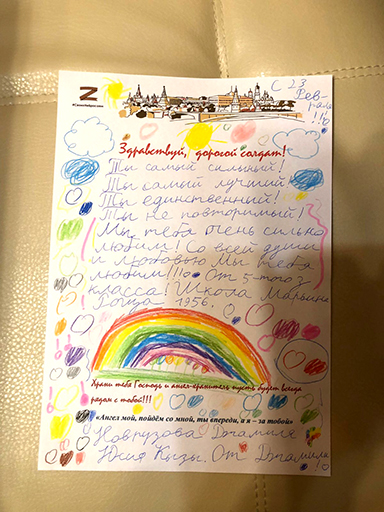 Z
С 23
Фев-
раля
!!!
Здравствуй, дорогой солдат!
Ты самый сильный!
Ты самый лучший!
Ты единственный!
Ты не повторимый!
Мы тебя очень сильно
любим! Со всей души
и любовью мы тебя
любим! От 5-того З
класса! Школа Марьина
Роща 1956.
Храни тебя Господь и ангел-хранитель пусть будет всегда
рядом с тобой!!!
«Ангел мой, пойдём со мной, ты впереди, а я – за тобой»
Новрузова Джамиля
Кызы. От Джамили